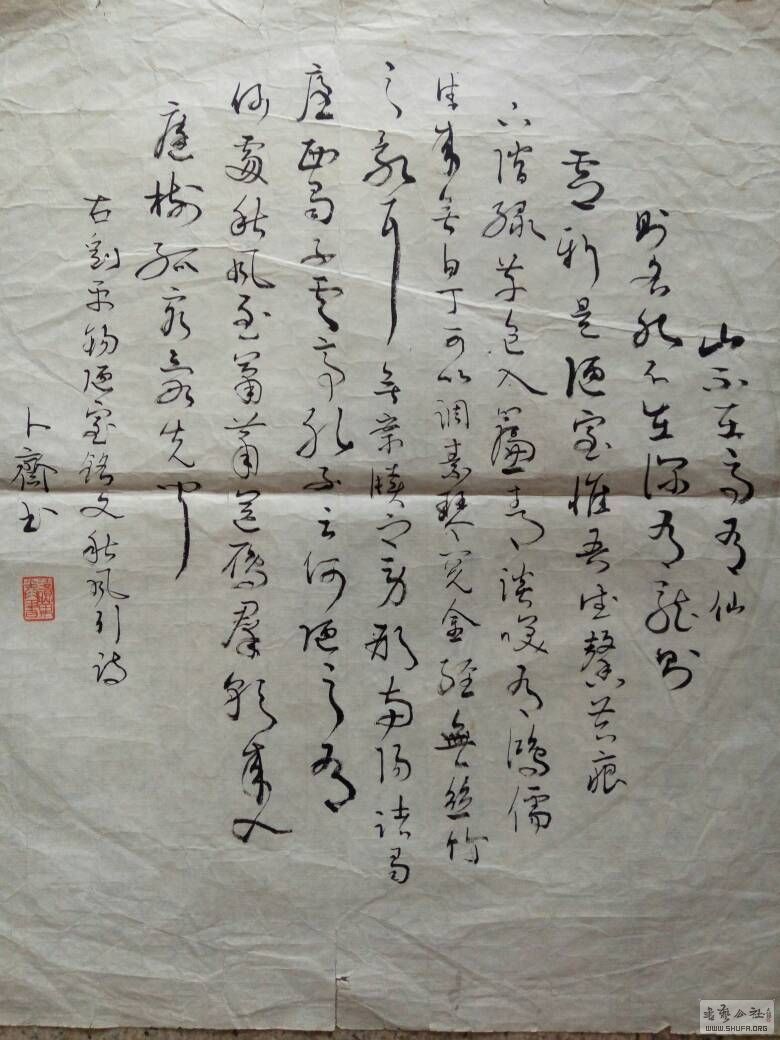 山不在高有仙
则名水不在深有龙则
灵斯是陋室惟吾德馨苔痕
上階绿草色入簾青谈笑有鸿儒
往来无白丁可以调素琴阅金经無丝竹
之乱耳无案牍之劳形南阳诸葛
庐西蜀子云亭孔子云何陋之有
何处秋风至萧萧送雁群朝来入
庭树孤客最先闻
右刘禹锡陋室铭文秋风引诗
卜齋书
书艺公社
WWW.SHUFA.ORG